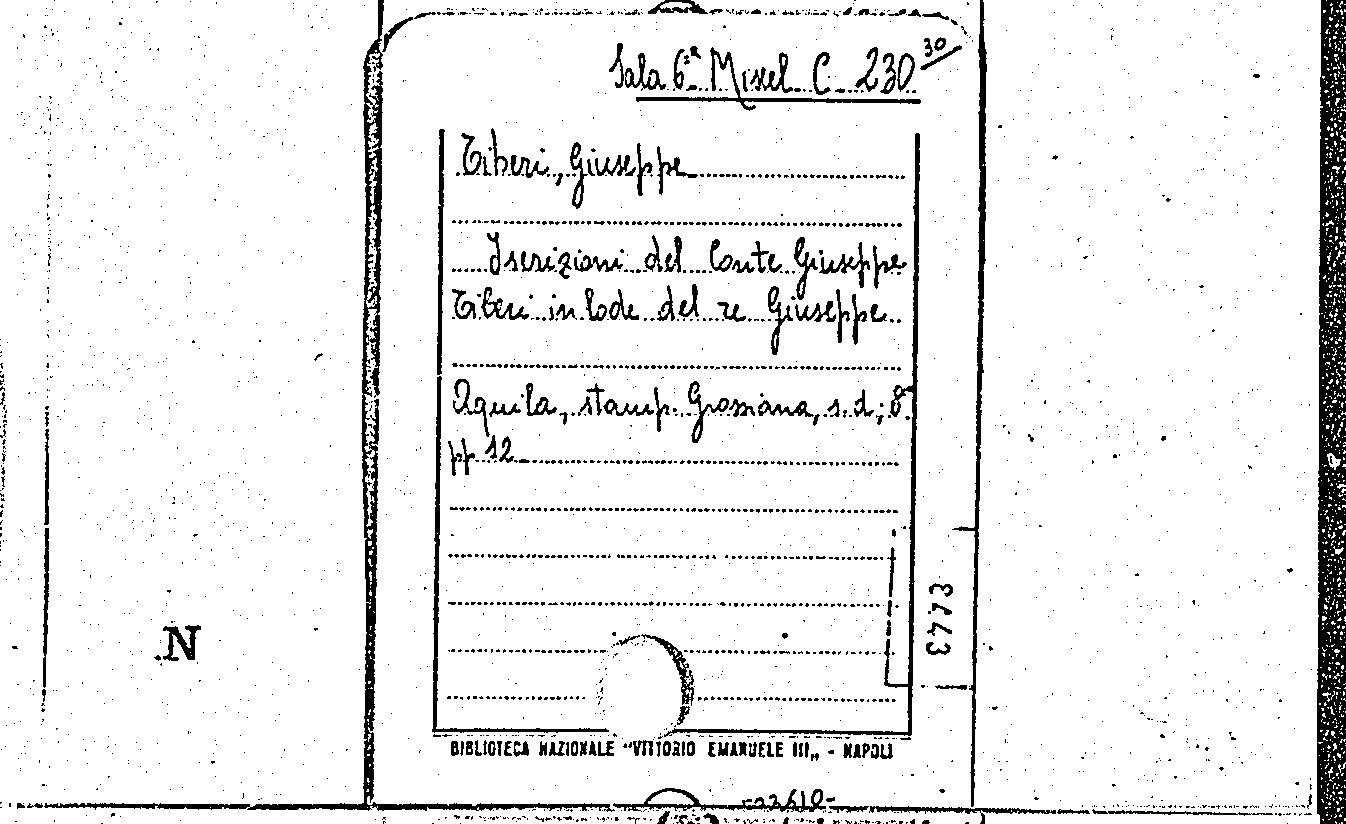 Sala 6ª Miscel. C. 230 30
Tiberi, Giuseppe
Iscrizioni del Conte Giuseppe
Tiberi in lode del re Giuseppe.
Aquila, stamp. Grossiana, s.d.; 8º
pp 12
3443
N
BIBLIOTECA NAZIONALE "VITTORIO EMANUELE III„ - NAPOLI